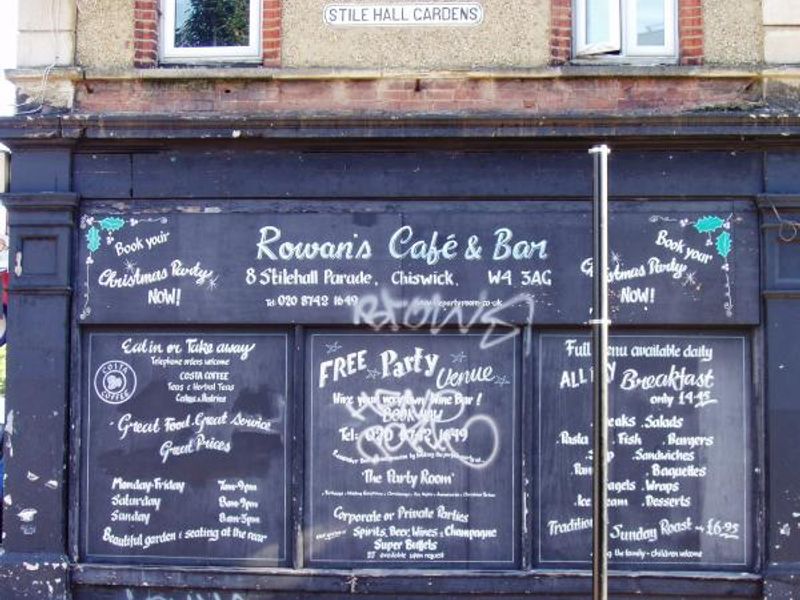 STILE HALL GARDENS
Book your
Christmas Party
NOW!
Rowan's Café & Bar
8 Stilehall Parade, Chiswick, W4 3AG
Tel: 020 8742 1649
Book your
Christmas Party
NOW!
Eat in or Take away
Telephone orders welcome
COSTA COFFEE
Teas & Herbal Teas
COSTA
COFFEE
Great Food. Great service
Great Prices
Monday-Friday 7am-9pm
Saturday 8am-9pm
Sunday 8am-5pm
Beautiful garden & seating at the rear
FREE Party
Venue
Hire your very own Wine Bar!
BOOK NOW
Tel: 020 8742 1649
"The Party Room"
Corporate or Private Parties
Spirits, Beer, Wines, Champagne
Super Buffets
available upon request
Full menu available daily
ALL Day Breakfast
only £4.45
Salads
Pasta Fish Burgers
Sandwiches
Baguettes
Wraps
Ice Desserts
Sunday Roast £6.95
the family - children welcome